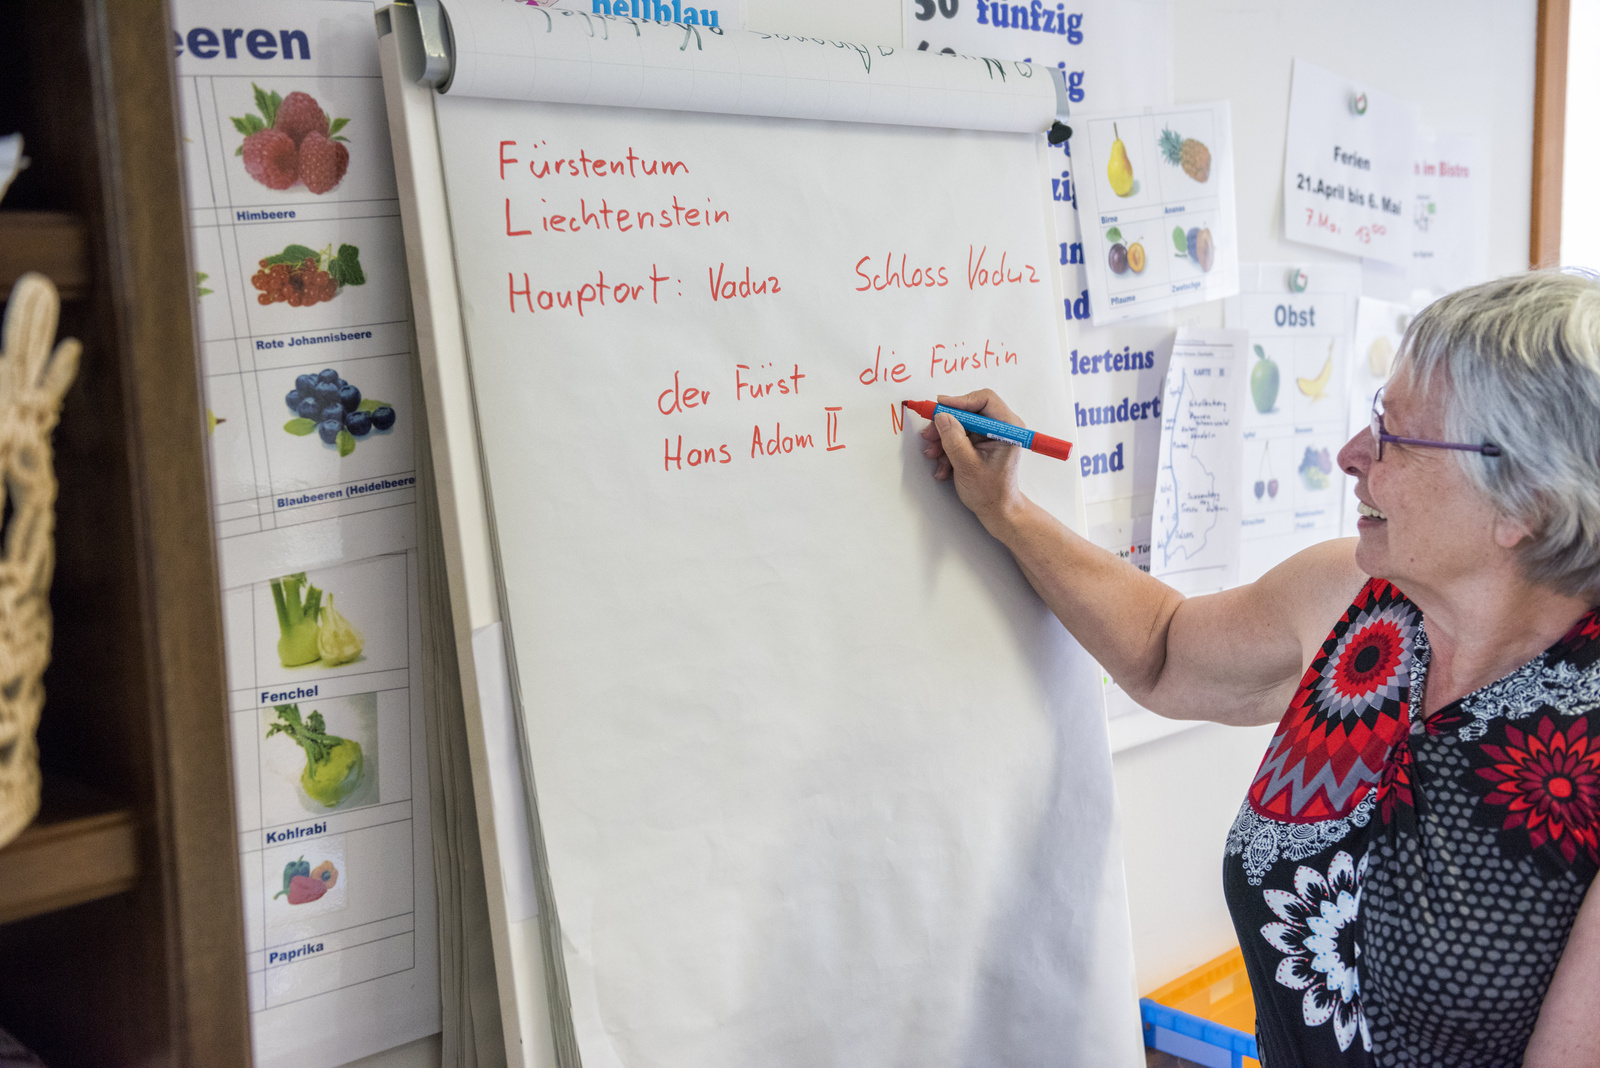 eeren
Himbeere
Rote Johannisbeere
Blaubeeren (Heidelbeere
Fenchel
Kohlrabi
Paprika
hellblau
50 fünfzig
Fürstentum
Liechtenstein
Hauptort: Vaduz
Schloss Vaduz
der Fürst
die Fürstin
Hans Adam II
N
derteins
hundert
end
Birne
Ananas
Pflaume
Zwetschge
Ferien
21.April bis 6. Mai
7 Mai 13 00
s im Bistro
Obst
KARTE